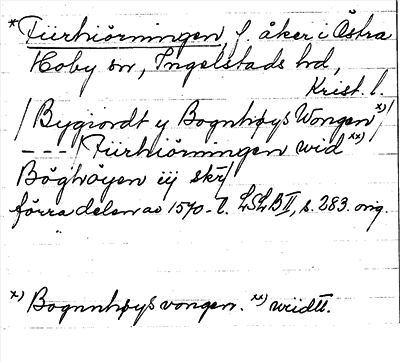 *Fiirhiörningen, f. åker i Östra
Hoby sn, Ingelstads hd,
Krist. l.
/Bygiordt y BognhøysWongen x)/
---/Fiirhiörningen wid xx)
Böghöyen iij skr/
förra delen av 1570-t. LSLB II, s. 283. orig.
x) Bognnhøysvongen. xx) wiidtt.